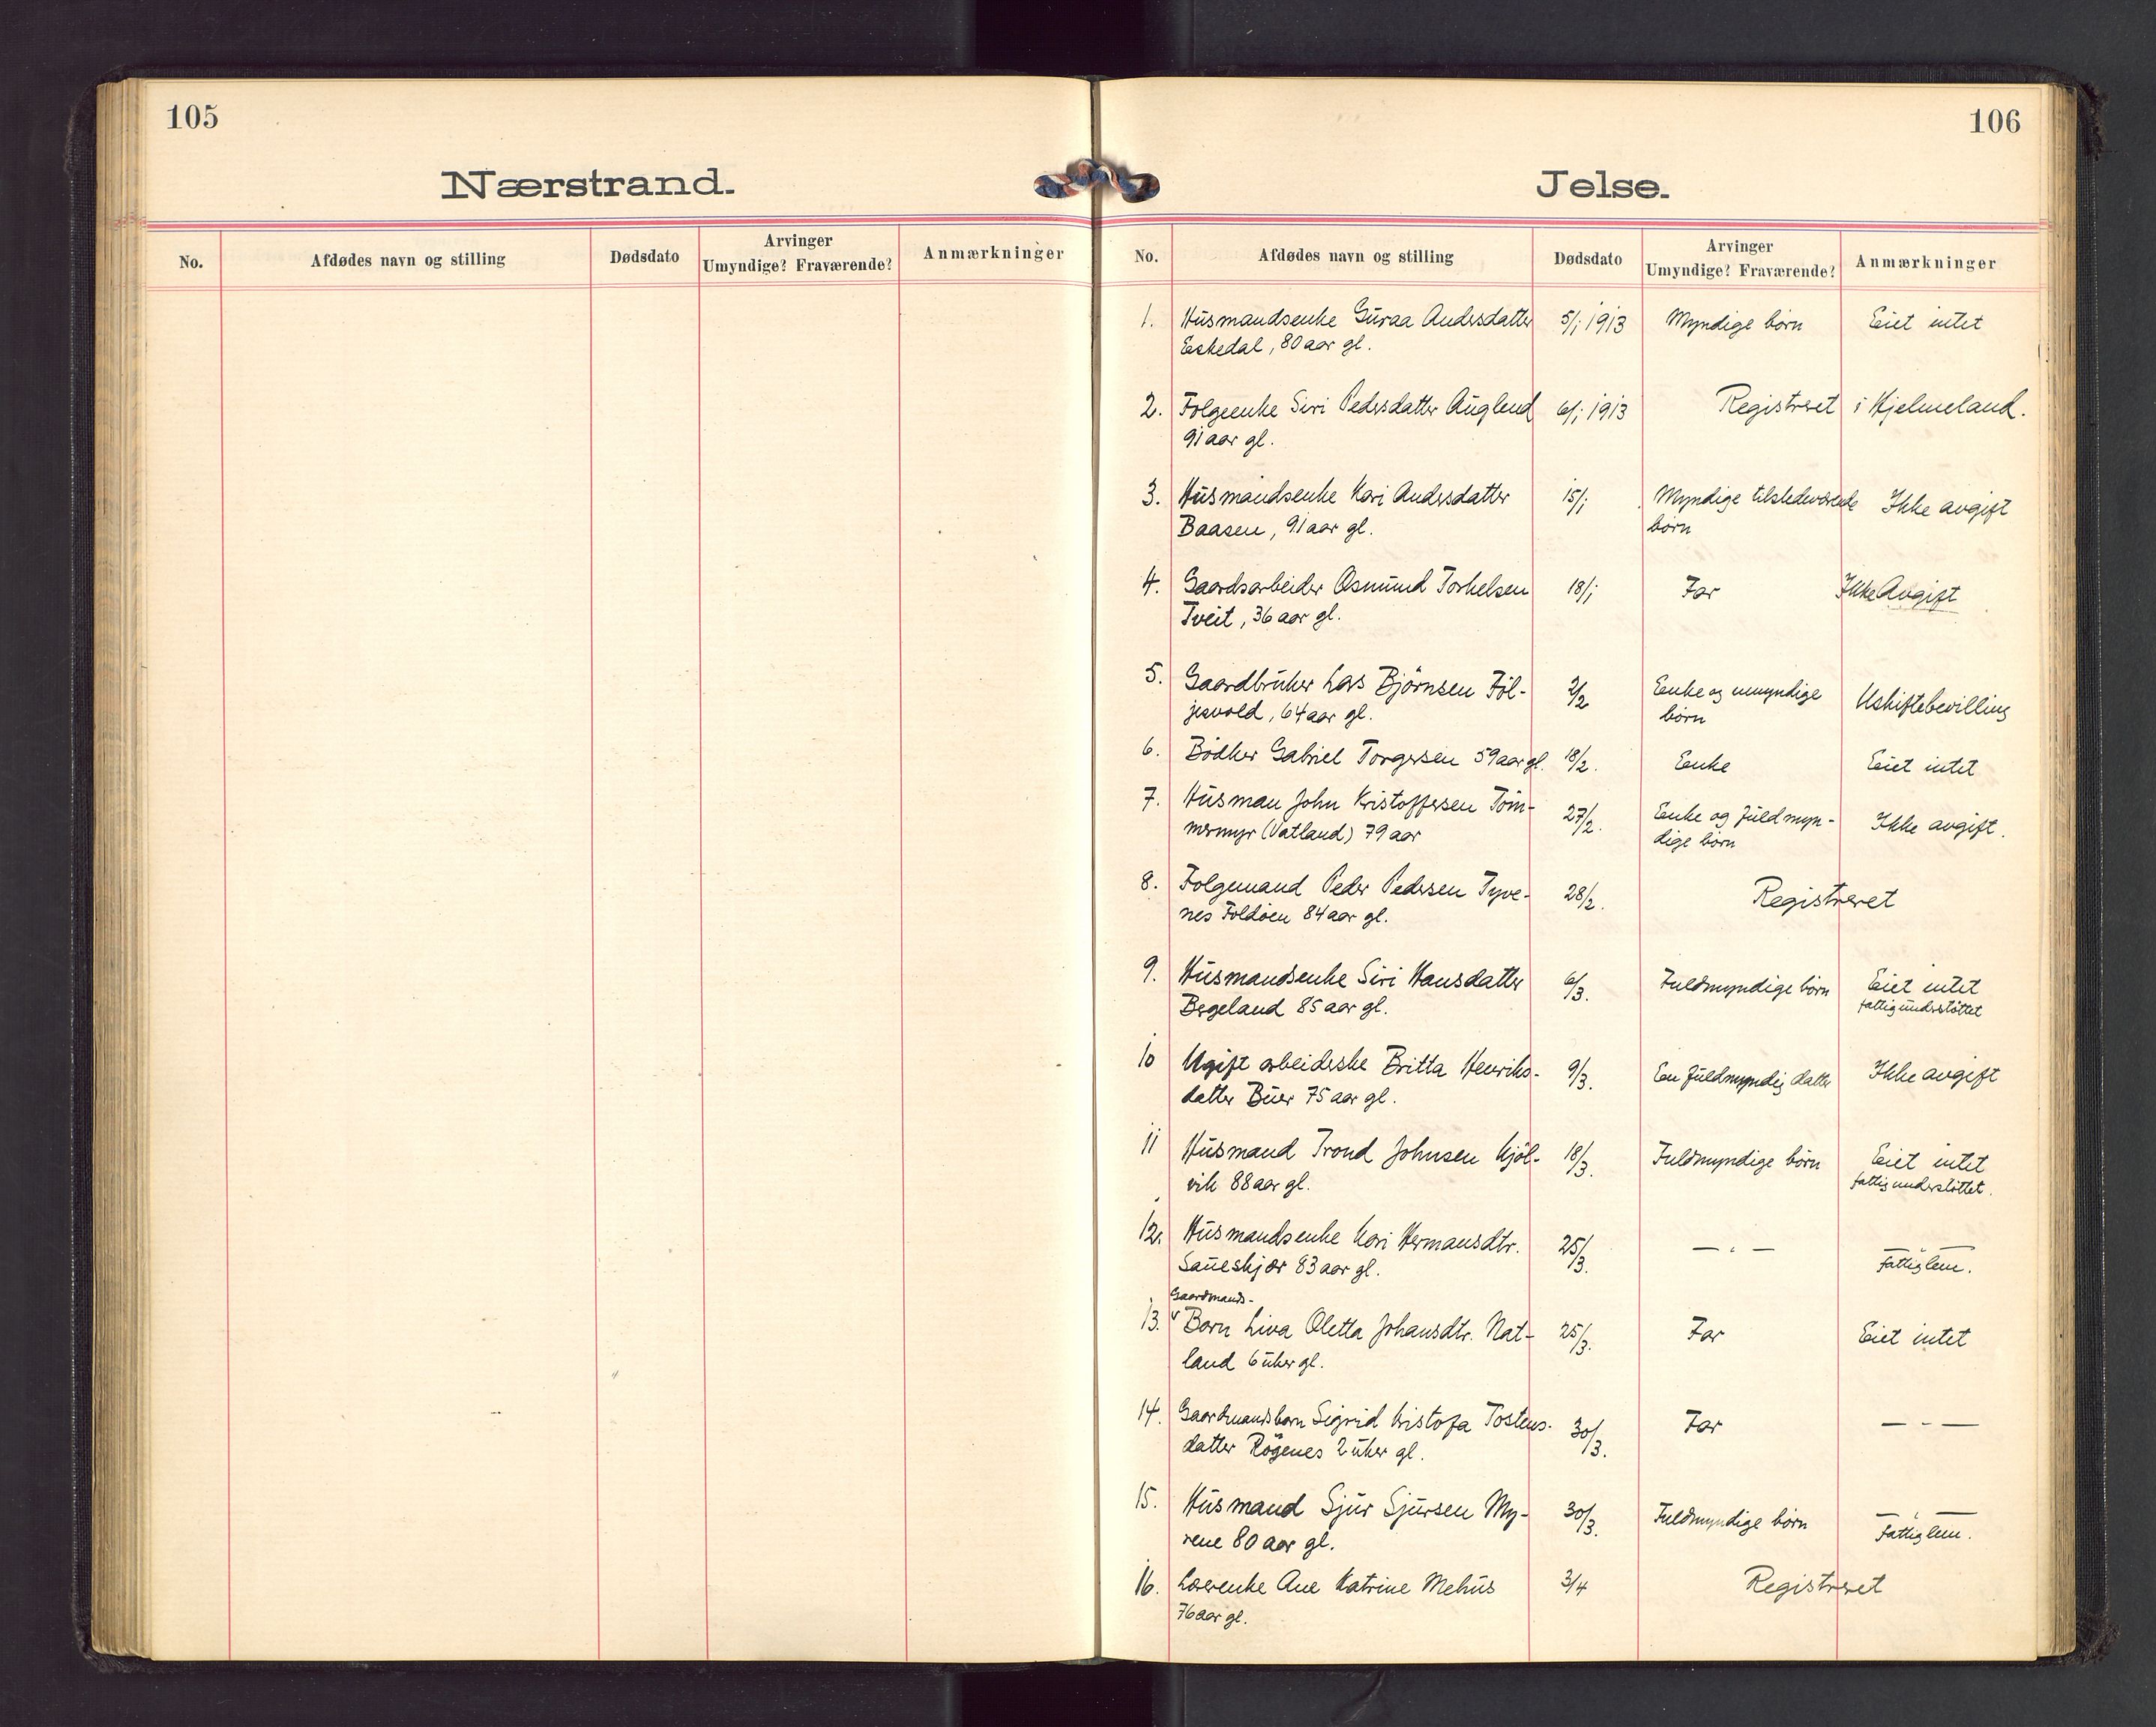 105
Nærstrand.
No. Afdødes navn og stilling Dødsdato Arvinger Umyndige? Fraværende? Anmærkninger
106
Jelse.
No. Afdødes navn og stilling Dødsdato Arvinger Umyndige? Fraværende? Anmærkninger
1. Husmandsenke Guraa Andersdatter 5/1 1913 Myndige børn Eiet intet
Eskedal, 80 aar gl.
2. Folgeenke Siri Pedersdatter Auglend 6/1 1913 Registreret i Hjelmeland.
91 aar gl.
3. Husmandsenke Kari Andersdatter 15/1 Myndige tilstedeværende Ikke avgift
Baasen, 91 aar gl. børn
4. Gaardsarbeider Osmund Torkelsen 18/1 Far Ikke Avgift
Tveit, 36 aar gl.
5. Gaardbruker Lars Bjørnsen Føl- 2/2 Enke og umyndige Uskiftebevilling
jesvold, 64 aar gl. børn
6. Bødker Gabriel Torgersen 59 aar gl. 18/2. Enke Eiet intet
7. Husman John Kristoffersen Tøm- 27/2. Enke og fuldmyn- Ikke avgift.
mermyr (Vatland) 79 aar dige børn
8. Folgemand Peder Pedersen Tyve- 28/2. Registreret
nes Foldøen 84 aar gl.
9. Husmandsenke Siri Hansdatter 6/3. Fuldmyndige børn Eiet intet
Bergeland 85 aar gl. fattigunderstøttet
10 Ugift arbeiderske Britta Henriks- 9/3. En fuldmyndig datter Ikke avgift
datter Buer 75 aar gl.
11 Husmand Trond Johnsen Kjøl- 18/3. Fuldmyndige børn Eiet intet
vik 88 aar gl. fattigunderstøttet.
12. Husmandsenke Kari Hermansdtr. 25/3. — " — — " —
Saueskjær 83 aar gl. Fattiglem.
Gaardmands-
13. Barn Liva Oletta Johansdtr. Nat- 25/3. Far Eiet intet
land 6 uker gl.
14. Gaardmandsbarn Sigrid Kristofa Tostens- 30/3. Far — " —
datter Røgenes 2 uker gl.
15. Husmand Sjur Sjursen My- 30/3. Fuldmyndige børn — " —
rene 80 aar gl. Fattiglem.
16. Lærerenke Ane Katrine Mehus 3/4 Registreret
76 aar gl.